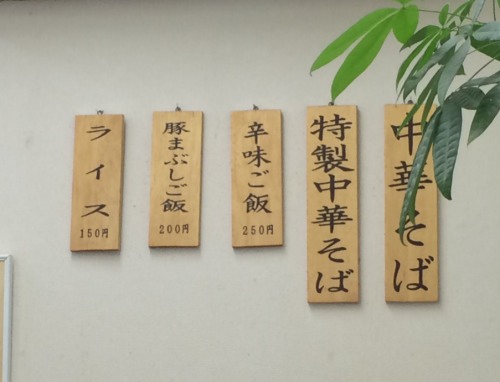 中華そば
特製中華そば
辛味ご飯
250円
豚まぶしご飯
200円
ライス
150円